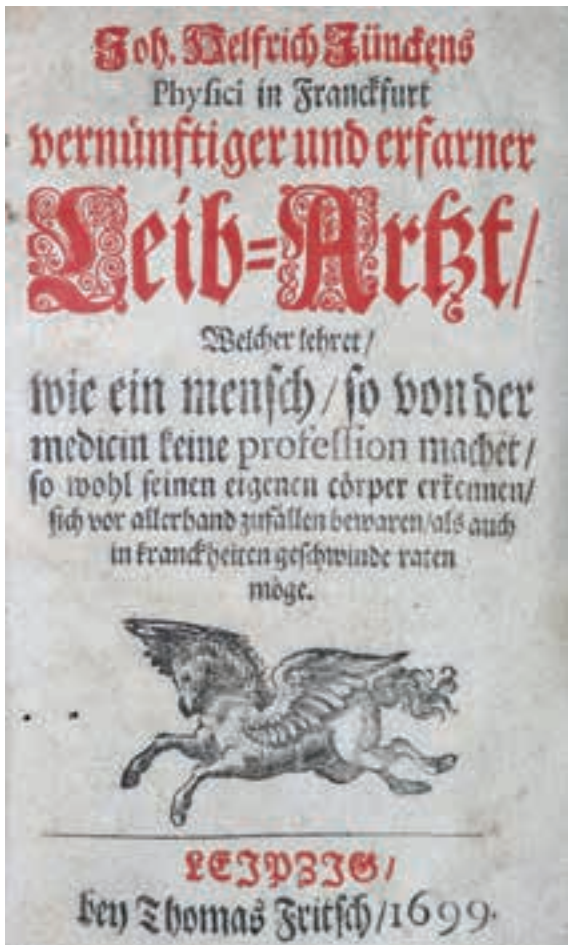 Joh. Helfrich Jünckens
Physici in Franckfurt
vernünftiger und erfarner
Leib=Artzt/
Welcher lehret/
wie ein mensch/ so von der
medicin keine profession machet/
so wohl seinen eigenen cörper erkennen/
sich vor allerhand zufällen bewaren/als auch
in kranckheiten geschwinde raten
möge.
LEIPZIG/
bey Thomas Fritsch/1699.